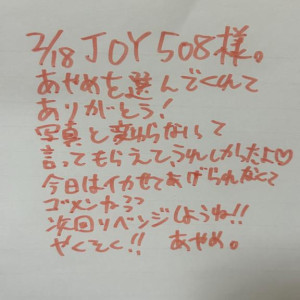 2/18 JOY508様。
あやめを選んでくれて
ありがとう！
写真と変わらないって
言ってもらえて、うれしかったよ♡
今日はイカせてあげられなくて
ゴメンねっっ
次回リベンジしようね!!
やくそく!! あやめ。